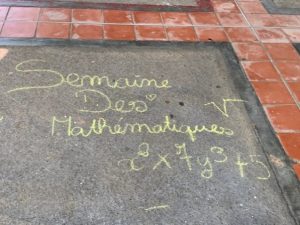 Semaine
Des
√
Mathématiques
2x7y³+5